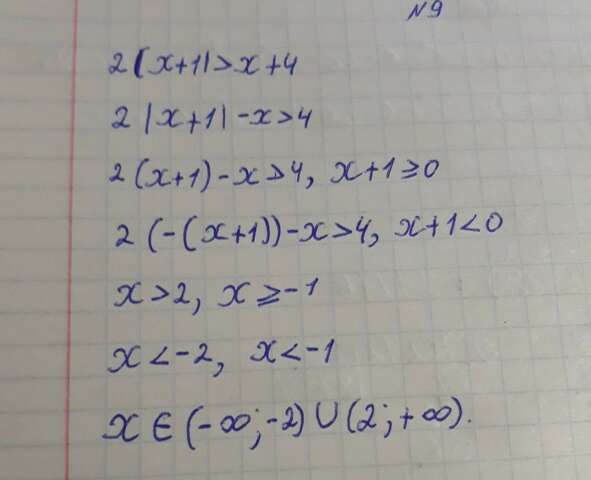 №9
2|x+1|>x+4
2|x+1|-x>4
2(x+1)-x>4, x+1≥0
2(-(x+1))-x>4, x+1<0
x>2, x≥-1
x<-2, x<-1
x∈(-∞;-2)∪(2;+∞).